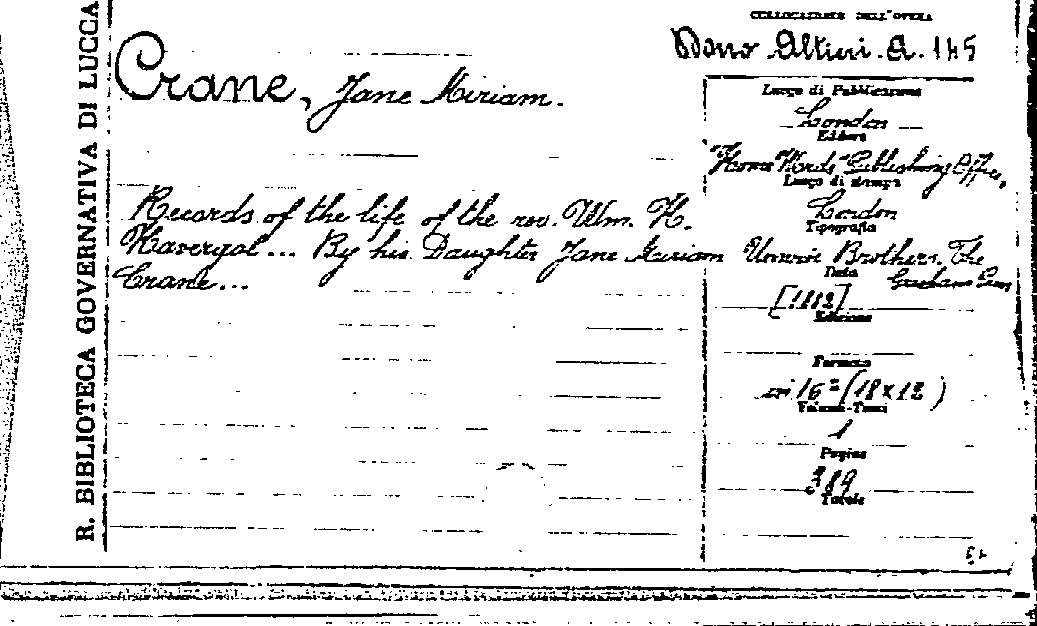 R. BIBLIOTECA GOVERNATIVA DI LUCCA
COLLOCAZIONE DELL'OPERA
Dono Altieri. A. 145
Crane, Jane Miriam.
Records of the life of the rev. Wm. H.
Havergal... By his Daughter Jane Miriam
Crane...
Luogo di Pubblicazione
London
Editore
"Home Words" Publishing Office,
Luogo di stampa
London
Tipografia
Unwin Brothers. The
Data
[1882]
Edizione
Formato
in 16° (18x12)
Volume-Tomi
1
Pagine
389
Tavole